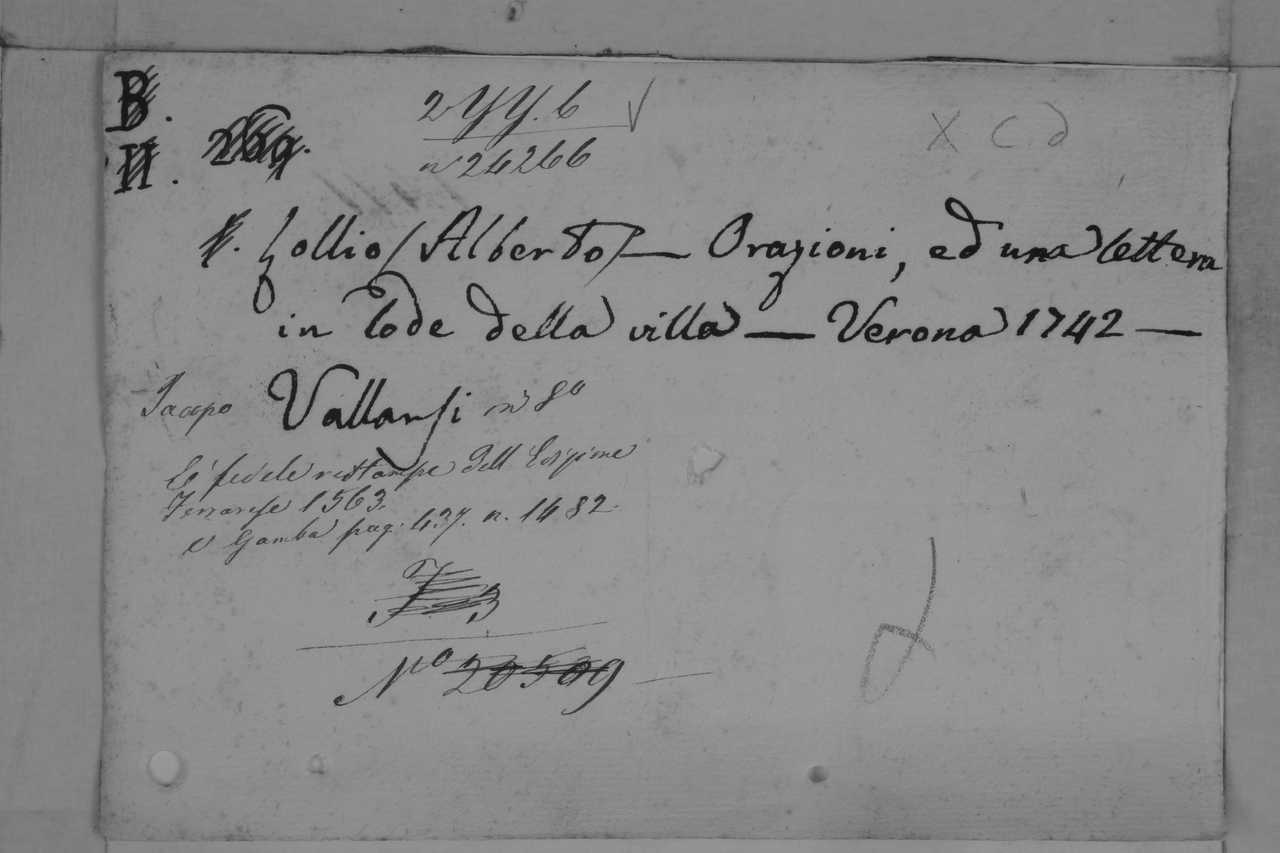 B.
H.
2YY.6
n 24266
X C d
Lollio (Alberto) — Orazioni, ed una lettera
in lode della villa — Verona 1742 —
Jacopo Vallarsi in 8º
È fedele ristampa dell'Edizione
Ferrarese 1563.
V Gamba pag. 437. n. 1482.
Nº 20509